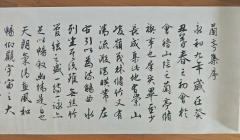 蘭亭集序
永和九年歲在癸
丑暮春之初會於
會稽山陰之蘭亭脩
禊事也群賢畢至少
長咸集此地有崇山
峻嶺茂林脩竹又有
清流激湍映帶左
右引以為流觴曲水
列坐其次雖無絲竹
管絃之盛一觴一詠亦
足以暢敘幽情是日也
天朗氣清惠風和
暢仰觀宇宙之大